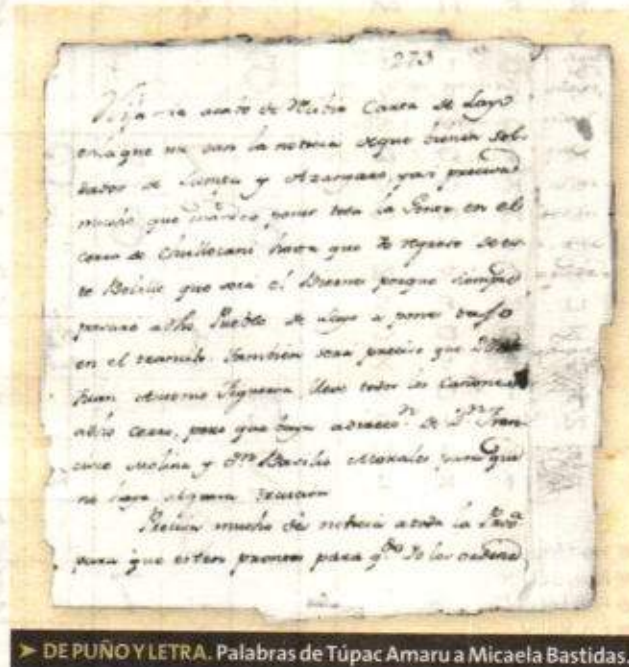 273
Hija mia acabo de Recibir Carta de Layo
en la que me dan la noticia de que bienen Sol-
dados de Lampa y Azangaro, y asi precisa
mucho que mandes poner toda la Gente en el
cerro de Chullocani hasta que Yo regrese de es-
te que será el porque siempre
pasaré a dho Pueblo de Layo a poner
en el también será preciso que
Juan Antonio Figueroa lleve todos los Cañones
a dho cerro, pero que baya a direcc.n de D.n Fran-
cisco Molina y D.n Basilio Morales para que
no haya alguna
Precisa mucho des noticia a toda la Prov.a
para que esten prontos para q.do Yo les ordene
➤ DE PUÑO Y LETRA. Palabras de Túpac Amaru a Micaela Bastidas.